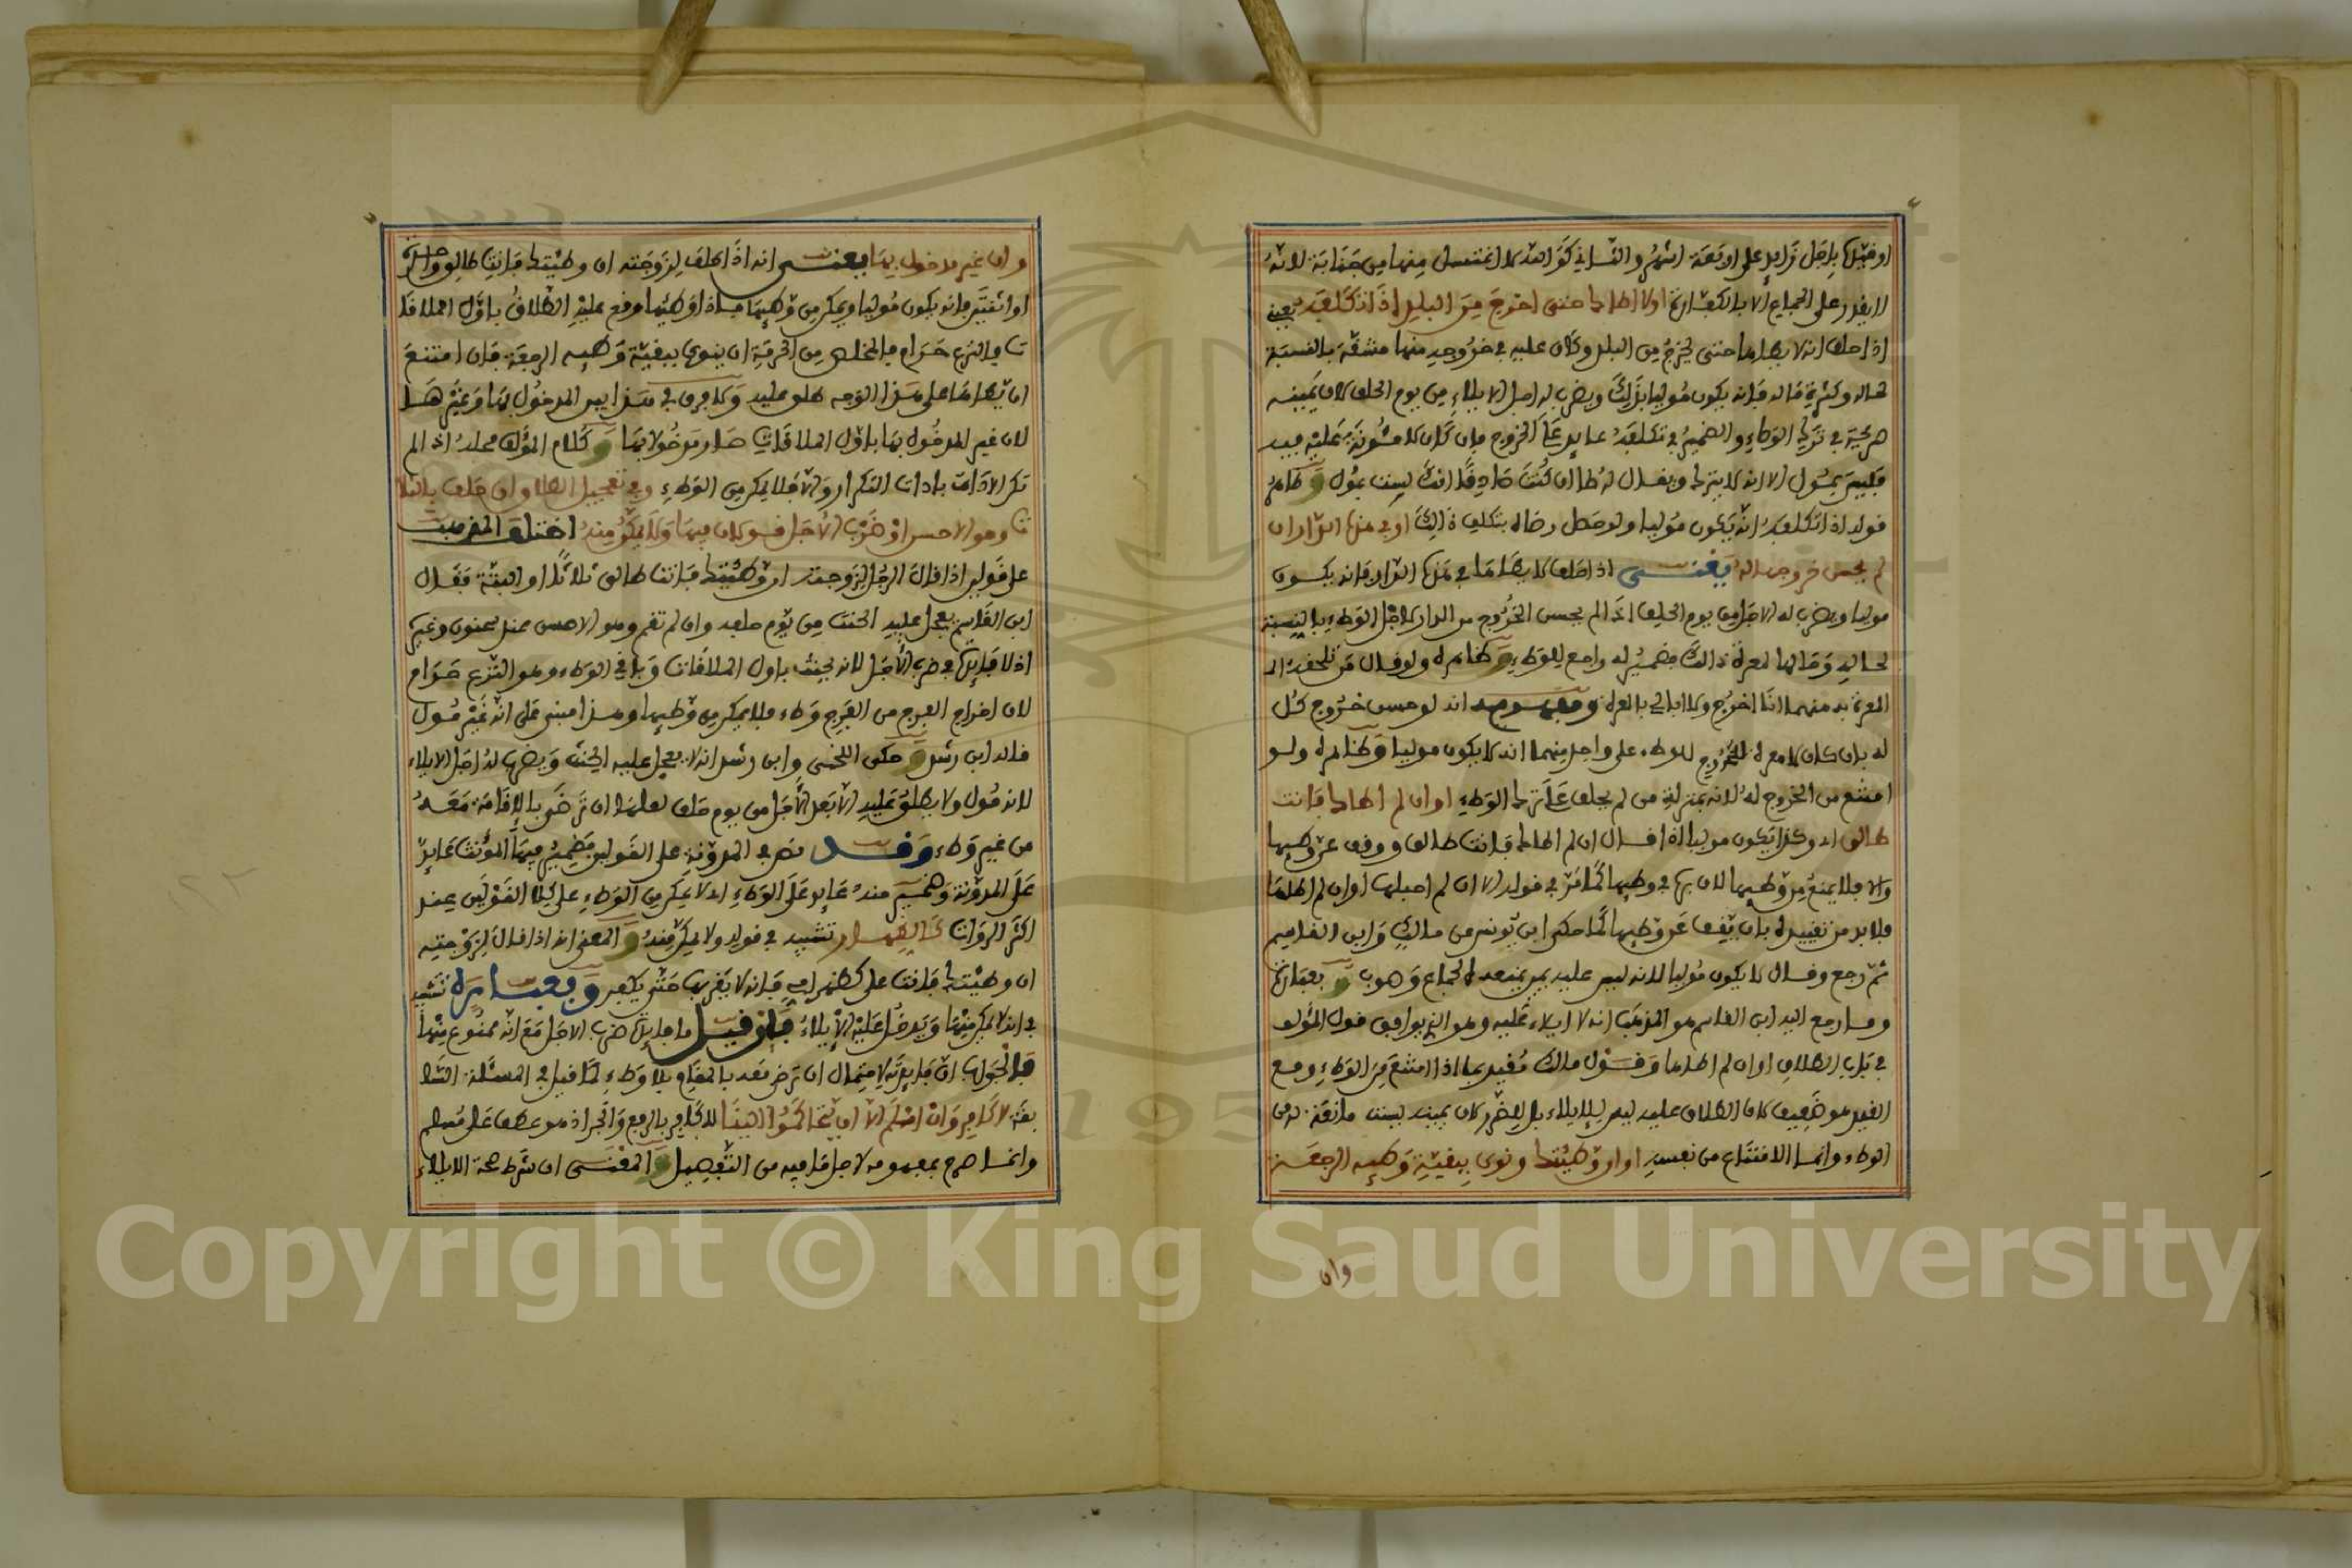 او قيدها باجل زايد على اربعة اشهر والثاني كوالله لا اغتسل منها من جنابة لانه
لا يقدر على الجماع الا بالكفارة اولا اطاك حتى اخرج من البلد اذا تكلفه يعني
اذا حلف انه لا يطاها حتى يخرج من البلد وكان عليه في خروجه منها مشقة بالنسبة
لحاله وكثرة ماله فانه يكون موليا بذلك ويضرب له اجل الايلاء من يوم الحلف لان يمينه
صريحة في ترك الوطء والضمير في تكلفه عايد على الخروج فان كان لا مئونة عليه فيه
فليس بمول الا انه لا يترك ويقال له طا ان كنت صادقا انك لست بمول وظاهر
قوله اذا تكلفه انه يكون موليا ولو حصل رضاه بتكلف ذالك او في هذه الدار ان
لم يحسن خروجها له يعني اذا حلف لا يطاها في هذه الدار فانه يكون
موليا ويضرب له الاجل من يوم الحلف اذا لم يحسن الخروج من الدار لاجل الوطء بالنسبة
لحاله وحالها لمعرة ذالك فضمير له راجع للوطء وظاهره ولو قال من تلحقه
المعرة به منهما انا اخرج ولا ابالي بالمعرة ومفهومه انه لو حسن خروج كل
له بان كان لا معرة للخروج للوطء على واحد منهما انه لا يكون موليا وظاهره ولو
امتنع من الخروج له لانه بمنزلة من لم يحلف على ترك الوطء او ان لم اطاك فانت
طالق اي وكذا يكون موليا اذا قال ان لم اطاك فانت طالق ووقف عن وطيها
والا فلا يمنع من وطيها لان برها في وطيها كما مر في قوله الا ان لم احبلها او ان لم اطاها
فلا بد من تقييده بان يقف عن وطيها كما حكى ابن يونس من مالك وابن القاسم
ثم رجع وقال لا يكون موليا لانه ليس عليه يمين يمنعه الجماع وصوب وبعبارة
وما رجع اليه ابن القاسم هو المذهب انه لا ايلاء عليه وهو الذي يوافق قول المؤلف
في باب الطلاق او ان لم اطاها وقول مالك مقيد بما اذا امتنع من الوطء ومع
القيد هو ضعيف لان الطلاق عليه ليس للايلاء بل للضرر لان يمينه ليست مانعة له من
الوطء وانما الامتناع من نفسه او ان وطئتك ونوى ببقية وطيه الرجعة
وان
وان غير مدخول بها يعني انه اذا حلف لزوجته ان وطئتك فانت طالق واحدة
او اثنتين فانه يكون موليا ويمكن من وطيها فاذا وطيها وقع عليه الطلاق باول الملاقا
ت والنزع حرام فالمخلص من الحرمة ان ينوي ببقية وطيه الرجعة فان امتنع
ان يطاها على هذا الوجه طلق عليه ولا فرق في هذا بين المدخول بها وغيرها
لان غير المدخول بها باول الملاقات صار مدخولا بها وكلام المؤلف محله اذا لم
تكن الاداة باداة التكرار والا فلا يمكن من الوطء وفي تعجيل الطلاق ان حلف بالثلا
ث وهو الاحسن او ضرب الاجل قولان فيها ولا يمكن منه اختلف المذهب
على قولين اذا قال الرجل لزوجته ان وطئتك فانت طالق ثلاثا او البتة فقال
ابن القاسم يعجل عليه الحنث من يوم حلفه وان لم تقم وهو الاحسن عند سحنون وغيره
اذ لا فايدة في ضرب الاجل لانه يحنث باول الملاقات وباقي الوطء وهو النزع حرام
لان اخراج الفرج من الفرج وطء فلا يمكن من وطيها وهذا مبني على انه غير مول
قاله ابن رشد وحكى اللخمي وابن رشد انه لا يعجل عليه الحنث ويضرب له اجل الايلاء
لانه مول ولا يطلق عليه الا بعد الاجل من يوم حلف لعلها ان ترضى بالاقامة معه
من غير وطء وقد نص في المدونة على القولين فضمير فيها المؤنث عايد
على المدونة وضمير منه عايد على الوطء اي لا يمكن من الوطء على كلا القولين عند
اكثر الرواة كالظهار تشبيه في قوله ولا يمكن منه والمعنى انه اذا قال لزوجته
ان وطئتك فانت علي كظهر امي فانه لا يقربها حتى يكفر وبعبارة تشبيه
في انه لا يمكن منها ويدخل عليه الايلاء فان قيل ما فايدة ضرب الاجل مع انه ممنوع منها
فالجواب ان فايدته لاحتمال ان ترضى معه بالمقام بلا وطء كما قيل في المسئلة السا
بقة لا كافر وان اسلم الا ان يتحاكموا الينا للكافر بالرفع والجر اذ هو عطف على مسلم
وانما صرح بمفهومه لاجل ما فيه من التفصيل والمعنى ان شرط صحة الايلاء
Copyright © King Saud University